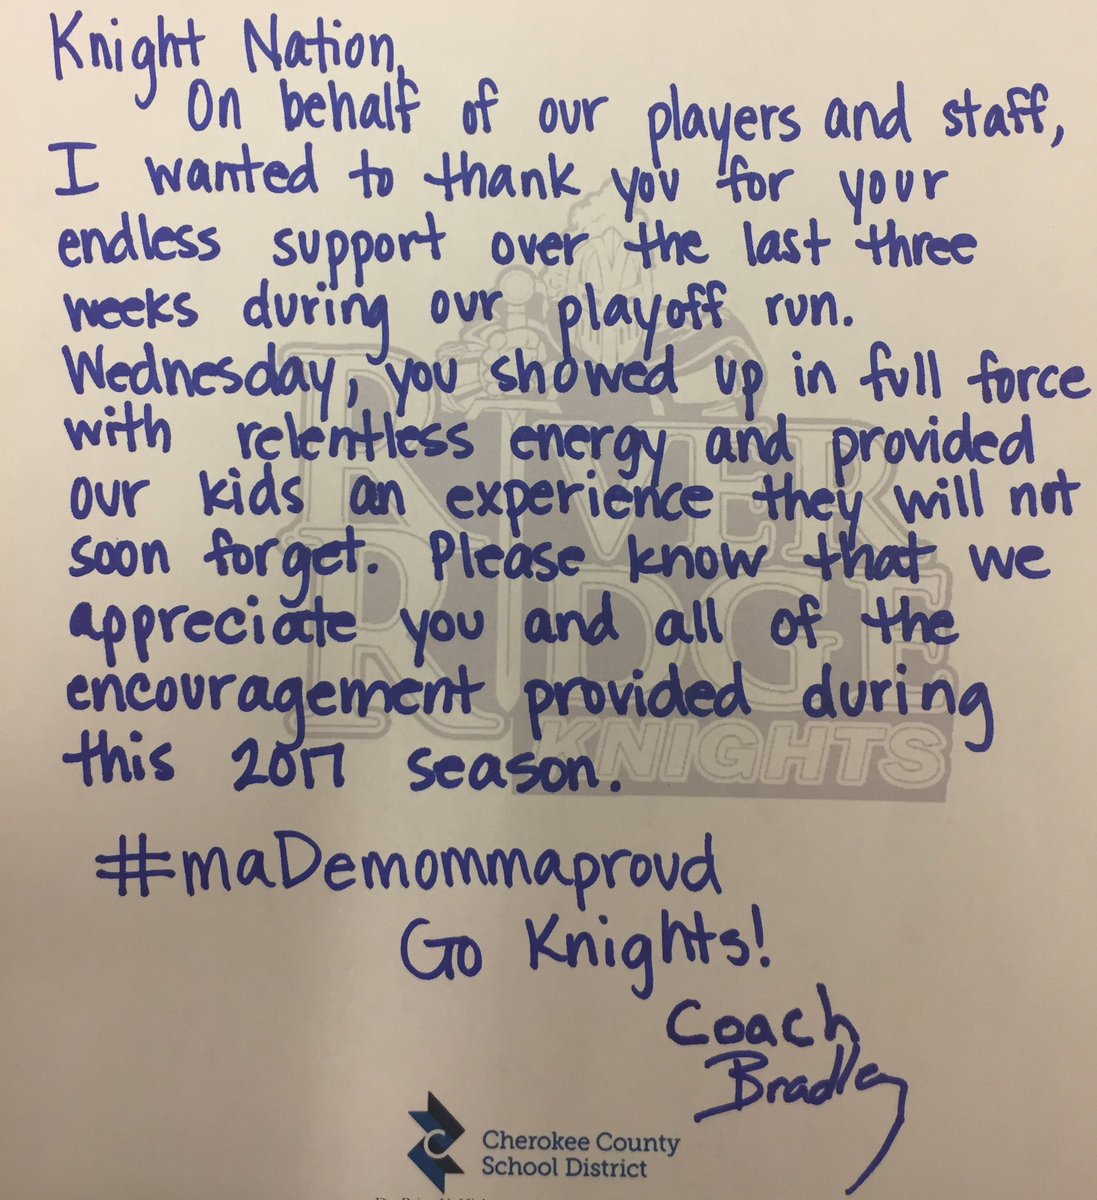 Knight Nation,
On behalf of our players and staff,
I wanted to thank you for your
endless support over the last three
weeks during our playoff run.
Wednesday, you showed up in full force
with relentless energy and provided
our kids an experience they will not
soon forget. Please know that we
appreciate you and all of the
encouragement provided during
this 2017 season.
#maDemommaproud
Go Knights!
Coach
Bradley
RIVER
RIDGE
KNIGHTS
Cherokee County
School District